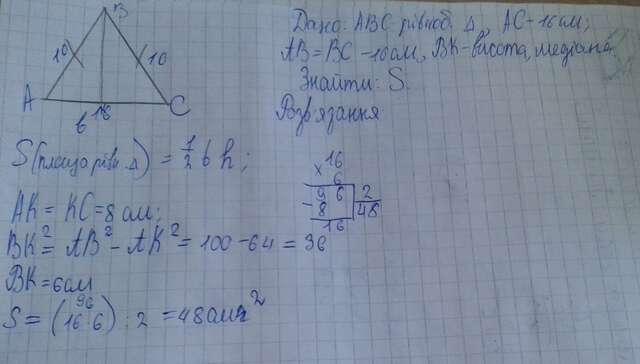 B
10
10
A
16
C
b
Дано: ABC рівноб. Δ, AC - 16 см;
AB = BC - 10 см, BK - висота, медіана
Знайти: S.
Розв'язання
S (площа рівн. Δ) = 1/2 b h;
× 16
6
96 | 2
- 8 | 48
16
AK = KC = 8 см;
BK² = AB² - AK² = 100 - 64 = 36
BK = 6 см
96
S = (16 · 6) : 2 = 48 см²